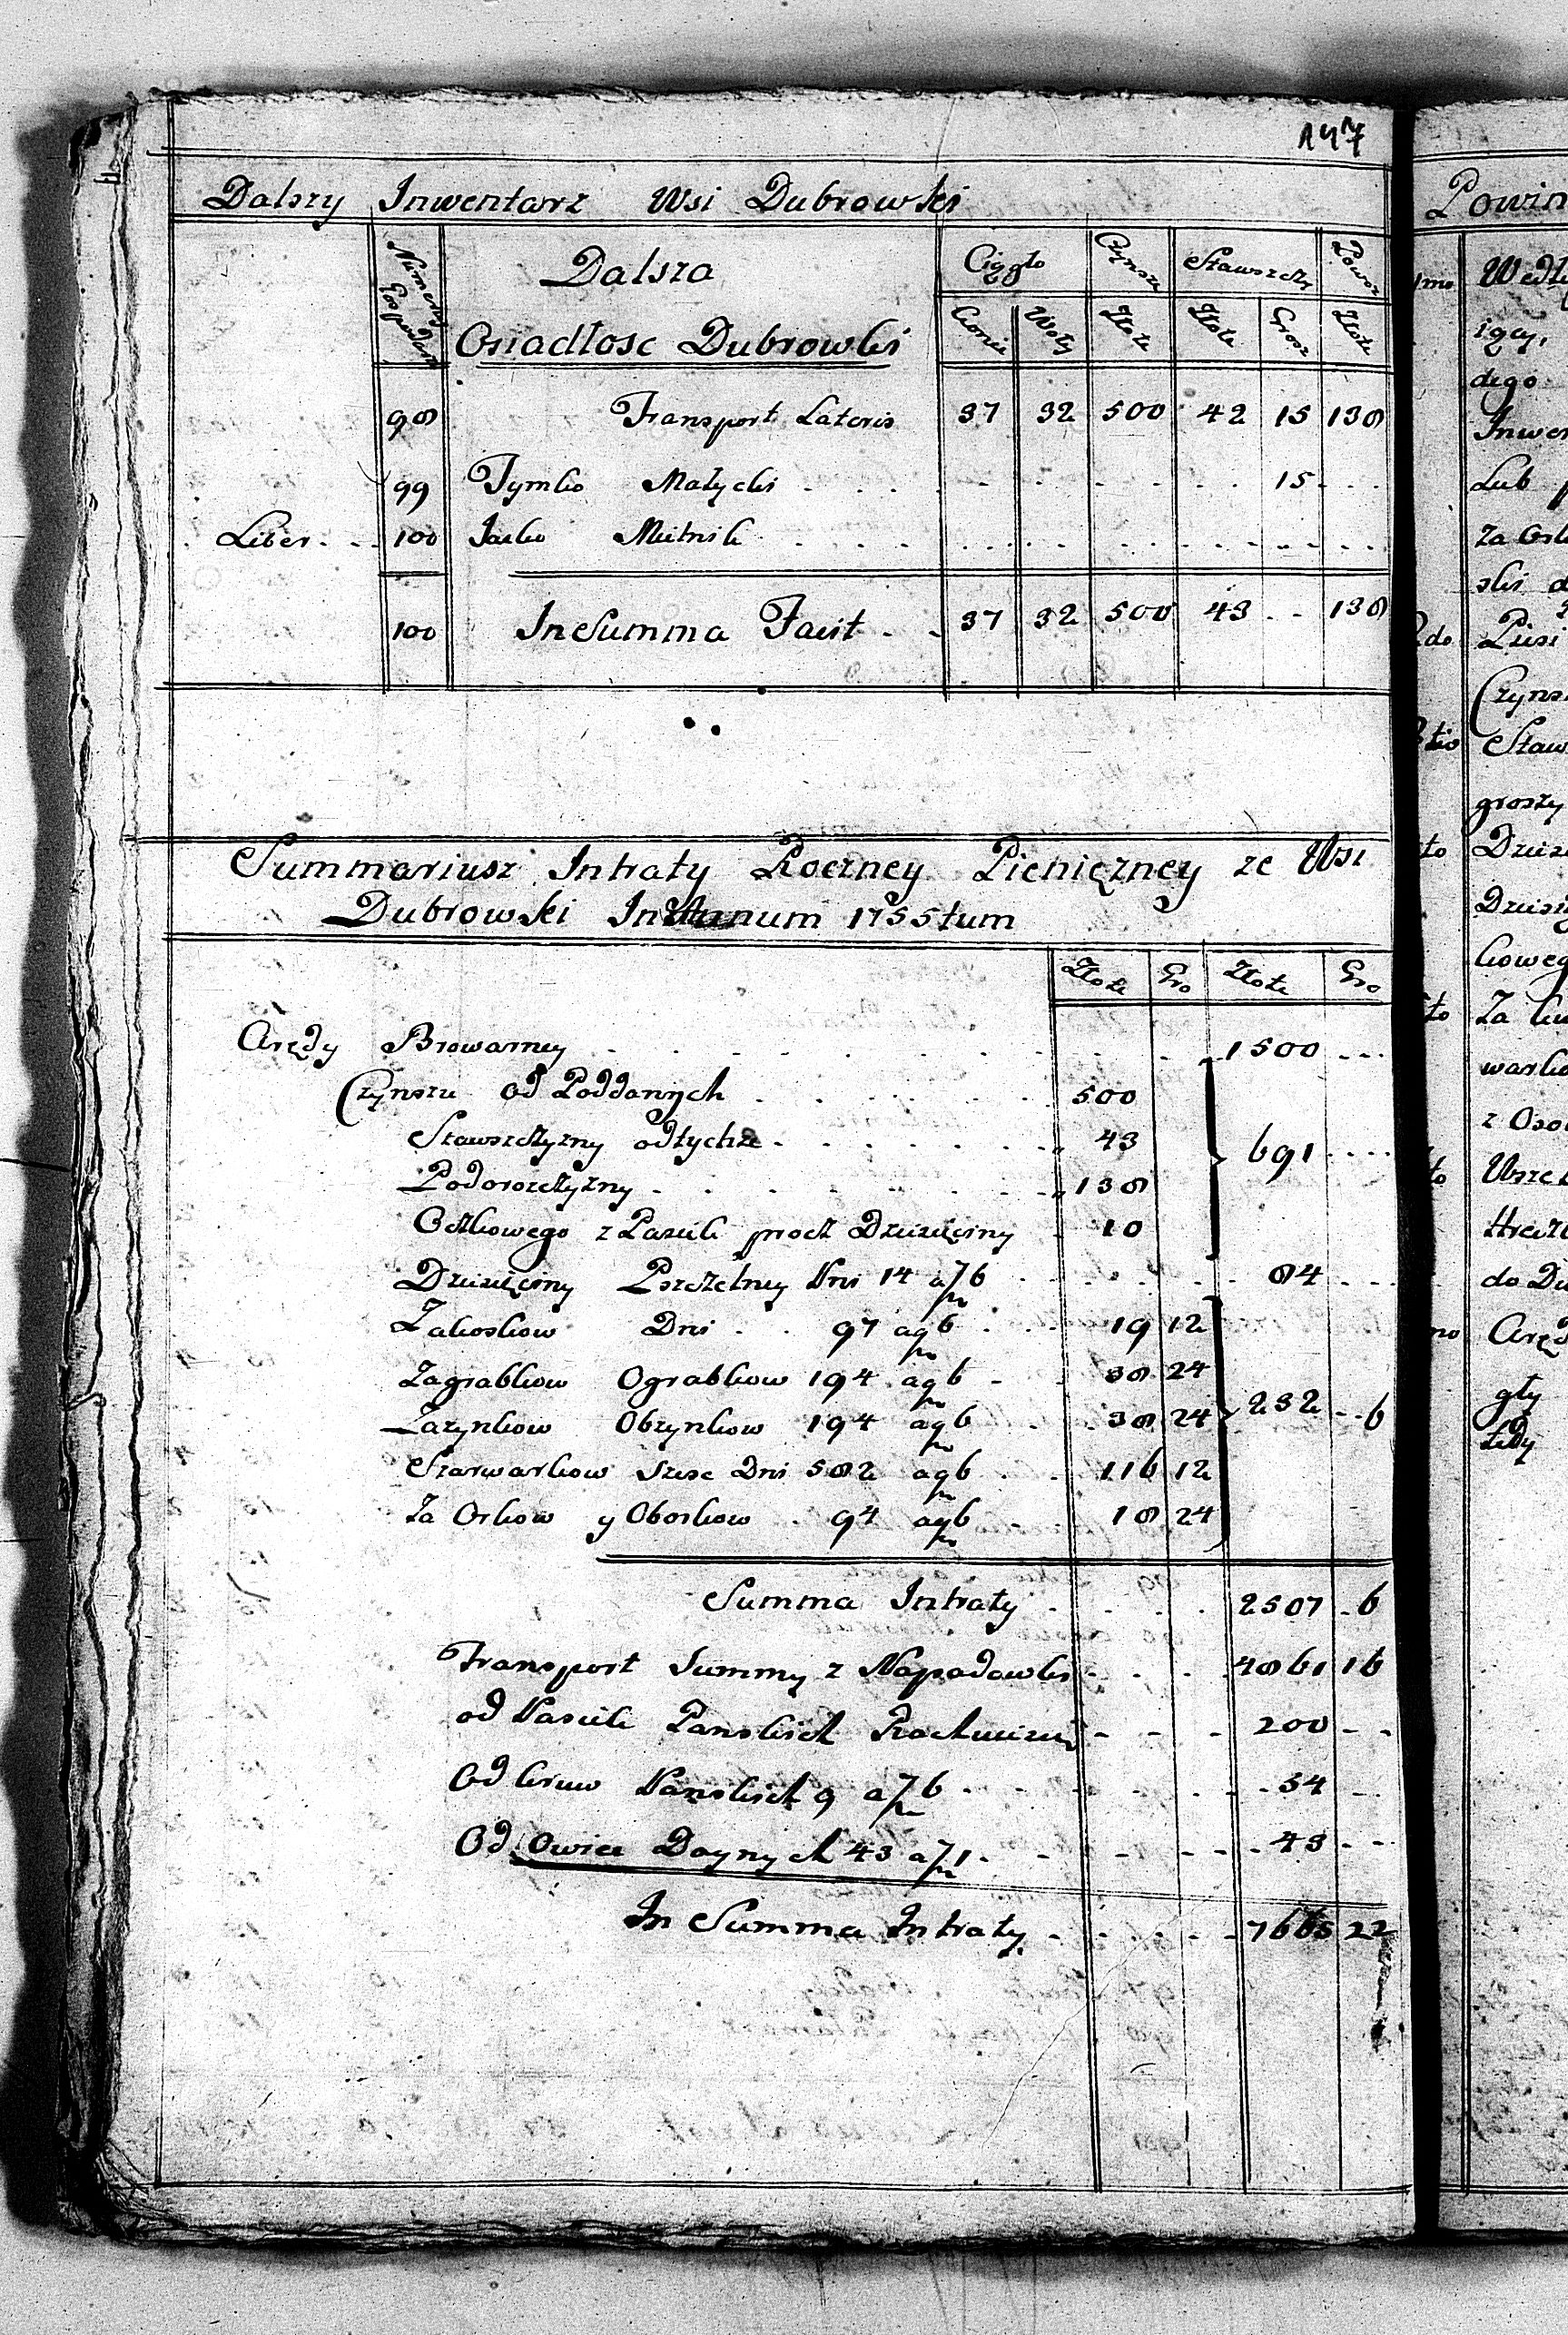 147
Dalszy Inwentarz Wsi Dubrowki
Numery Gospodarz
Dalsza
Osiadłosc Dubrowki
Ciągło Czynsze Stawszcz Powoz
Konie Woły Złote Złote Grosz Złote
98 Transport Lateris 37 32 500 42 15 138
99 Tymko Małycki . . . . . . . . 15 . . .
Liber . . 100 Jasko Mielnik . . . . . . . . .
100 In Summa Facit . . 37 32 500 43 . . 138
Summariusz Intraty Roczney Pieniężney ze Wsi
Dubrowki In Annum 1755tum
Złote Gro Złote Gro
Arędy Browarney . . . . . . . . 1500 . . .
Czynszu od Poddanych . . . . . . 500
Stawszczyzny odtychze . . . . . . 43 691 . . . .
Podoroszczyzny . . . . . . . . 138
Oczkowego z Pasiek procz Dziesięciny . 10
Dziesięciny Pszczelney Pni 14 a f 6 . . . . . 84 . . .
Zakoskow Dni . . 97 a g 6 . . . 19 12
Zagrabkow Ograbkow 194 a g 6 - . 38 24
Zazynkow Obzynkow 194 a g 6 . . 38 24 232 - - 6
Szarwarkow Szesc Dni 582 a g 6 . . 116 12
Za Orkow y Oborkow . 94 a g 6 . . 18 24
Summa Intraty . . . . 2507 . 6
Transport Summy z Napadowki - . . . 4861 16
od Pasiek Panskich - - - 200 - -
Od krow Panskich 9 a f 6 . . . . . . 54 . . .
Od Owiec Doynych 43 a f 1 . - . - - . 43 - - .
In Summa Intraty . - . - - 7665 22
Powin
1mo Wedł
igcy,
dego
Inwen
Lub p
2do
Czyns
3tio Staw
groszy
Dzies
Dziesię
koweg
warko
do Du
Aręd
gły
tedy